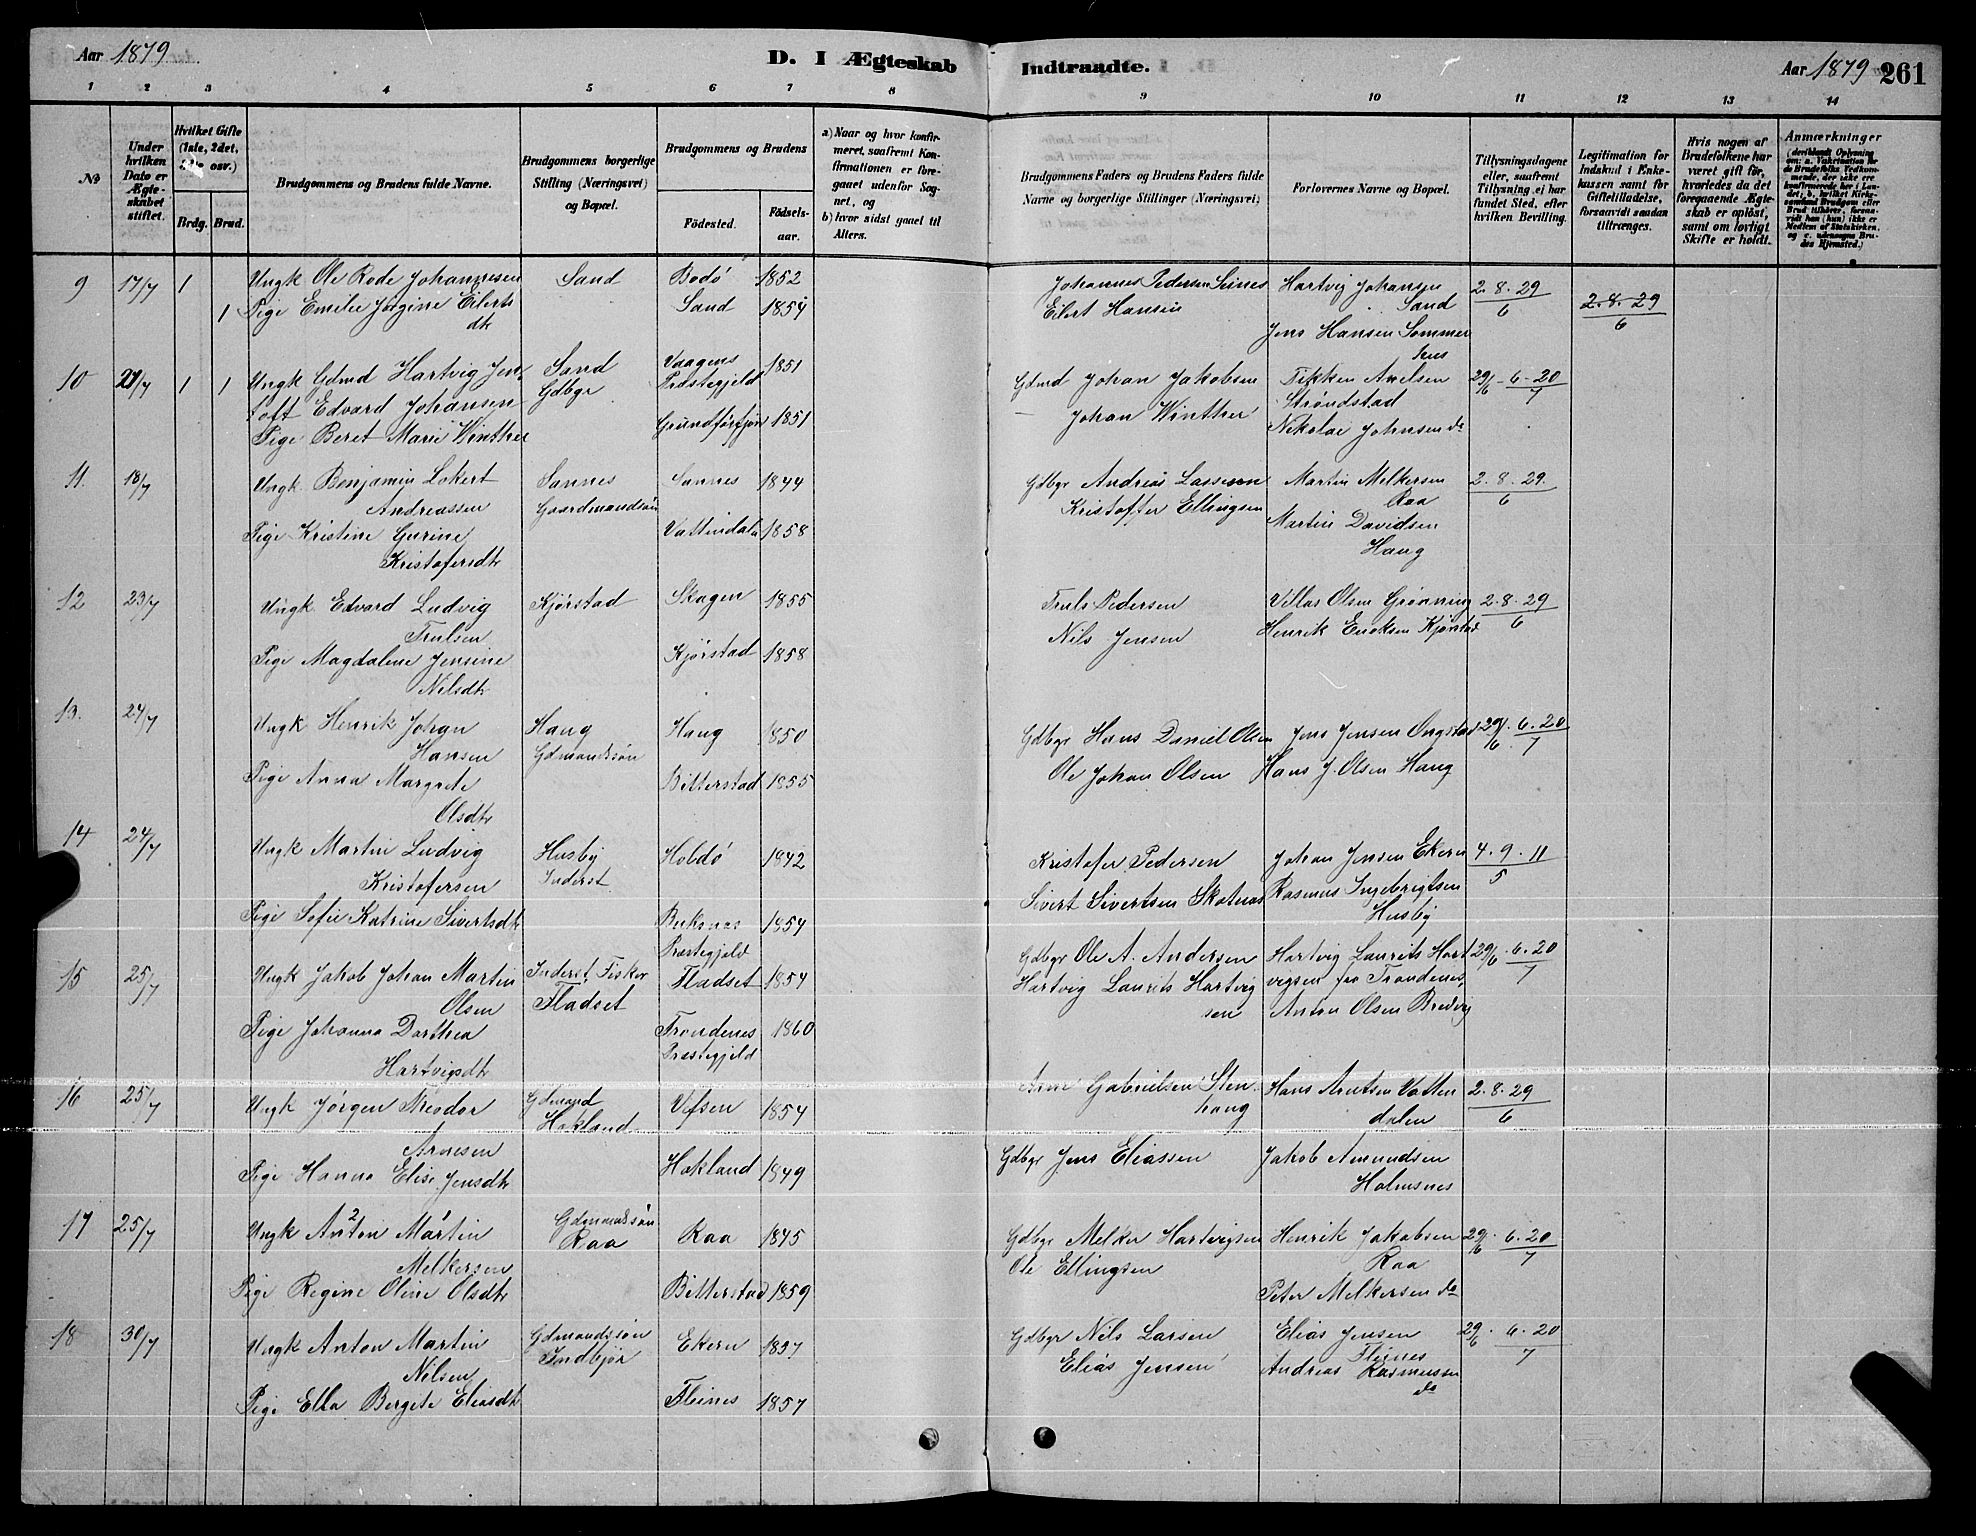 Aar 1879
D. I Ægteskab Indtraadte.
Aar 1879 261
1 2 3 4 5 6 7 8 9 10 11 12 13 14
No
Under hvilken Dato er Ægteskabet stiftet.
Hvilket Gifte (1ste, 2det, osv.)
Brdg. Brud.
Brudgommens og Brudens fulde Navne.
Brudgommens borgerlige Stilling (Næringsvei) og Bopæl.
Brudgommens og Brudens
Födested. Födselsaar.
a) Naar og hvor konfirmeret, saafremt Konfirmationen er foregaaet udenfor Sognet, og
b) hvor sidst gaaet til Alters.
Brudgommens Faders og Brudens Faders fulde Navne og borgerlige Stillinger (Næringsvei)
Forlovernes Navne og Bopæl.
Tillysningsdagene eller, saafremt Tillysning ei har fundet Sted, efter hvilken Bevilling.
Legitimation for Indskud i Enkekassen samt for Giftetilladelse, forsaavidt saadan tiltrænges.
Hvis nogen af Brudefolkene har været gift før, hvorledes da det foregaaende Ægteskab er oplöst, samt om lovligt Skifte er holdt.
Anmærkninger
9 17/7 1 Ungk Ole Rode Johannesen Sand Bodö 1852 Johannes Pedersen Seines Hartvig Johansen 2.8.29
1 Pige Emelie Jørgine Eilerts Sand 1854 Eilert Hansen Sand 6 2.8.29
dtr Jens Hansen Sommer 6
hus
10 21/7 1 1 Ungk Gdmd Hartvig Jen Sand Vaagens 1851 Gdmd Johan Jakobsen Tikken Axelsen 29/6 - 6.20
toft Edvard Johansen Gdbgr Præstegjeld Strøndstad 7
Pige Beret Marie Winther Grundførfjor 1851 - Johan Winther Nikolai Johnsen do
11. 18/7 Ungk. Benjamin Lokert Sannes Sannes 1844 Gdbgr Andreas Lassesen Martin Melkersen 2.8.29.
Andreassen Gaardmandssön Kristoffer Ellingsen Raa 6
Pige Kristine Gurine Vattendala 1858 Martin Davidsen
Kristofersdtr Haug
12 23/7 Ungk Edvard Ludvig Kjörstad Skagen 1855 Truls Pedersen Villas Olsen Grönning 2.8.29
Trulsen Nils Jensen Henrik Eriksen Kjörstad 6
Pige Magdalene Jensine Kjörstad 1858
Nilsdtr
13. 24/7 Ungk Henrik Johan Haug Haug 1850 Gdbgr Hans Daniel Olsen Jens Jensen Ongstad 29/6 . 6.20
Hansen Gdmandssön Ole Johan Olsen Hans J. Olsen Haug 7
Pige Anna Margrete Bitterstad 1855
Olsdtr
14 24/7 Ungk Martin Ludvig Husby Hobdö 1842 Kristofer Pedersen Johan Jensen Ekern 4.9.11
Kristofersen Inderst Sivert Sivertsen Skotnes Rasmus Ingebrigtsen 5
Pige Sofie Katrine Sivertsdtr Buksnas 1854 Husby
Præstegjeld
15 25/7 Ungk Jakob Johan Martin Inderst Fisker Fladset 1854 Gdbgr Ole A. Andersen Hartvig Laurits Hart 29/6 . 6.20
Olsen Fladset Hartvig Laurits Hartvig vigsen fra Trondenes, 7
Pige Johanna Dorthea Trondenes 1860 sen Anton Olsen Bredvig
Hartvigsdtr Præstegjeld
16 25/7 Ungk Jörgen Theodor Gdmand Vefsen 1854 Arne Gabrielsen Sten Hans Arntsen Vatten 2.8.29
Arnesen Hokland haug dalen 6
Pige Hanna Elise Jensdtr Hokland 1849 Gdbgr Jens Eliassen Jakob Amundsen
Holmsnes
17 25/7 Ungk Anton Martin Gdmandssön Raa 1845 Gdbgr Melker Hartvigsen Henrik Jakobsen 29/6 . 6.20
Melkersen Raa Ole Ellingsen Raa 7
Pige Regine Oline Olsdtr Bitterstad 1859 Peter Melkersen do
18 30/7 Ungk Anton Martin Gdmandssön Ekern 1857 Gdbgr Nils Larsen Elias Jensen 29/6 . 6.20
Nilsen Indbjör Elias Jensen Fleines 7
Pige Ella Bergete Eliasdtr Fleines 1857 Andreas Rasmussen
do